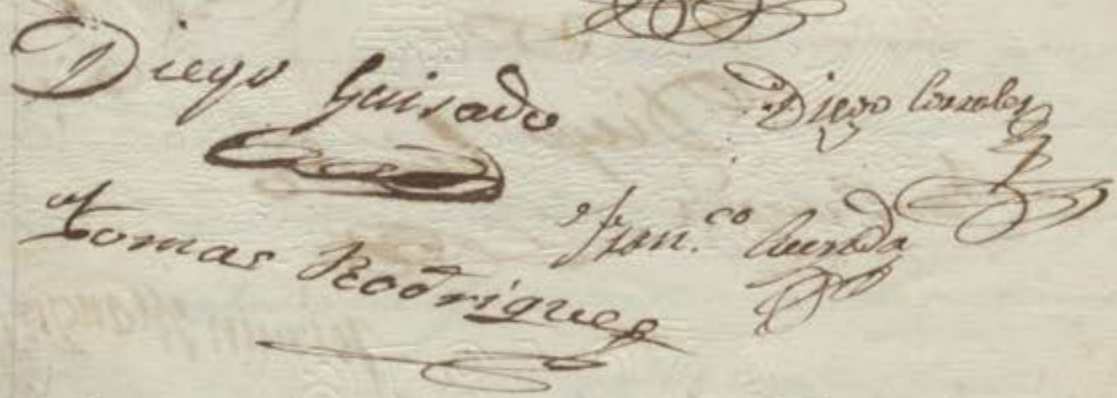 Diego Guisado
Diego Corrales
Tomas Rodrigues
Fran.co